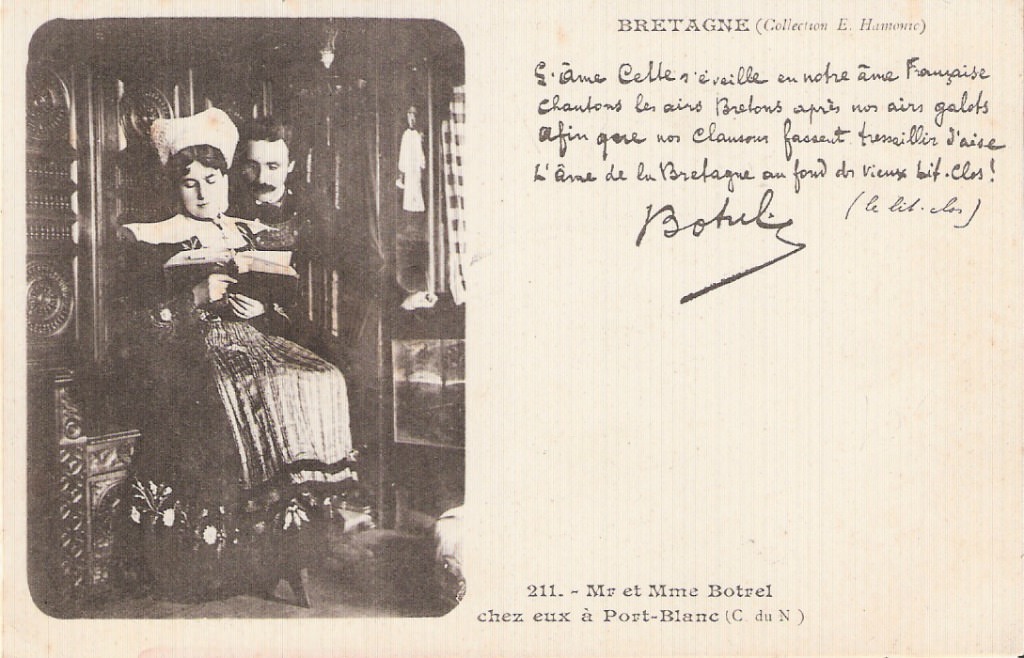 BRETAGNE (Collection E. Hamonic)
L'âme Celte s'éveille en notre âme Française
Chantons les airs Bretons après nos airs galots
Afin que nos Chansons fassent tressaillir d'aise
L'âme de la Bretagne au fond du vieux Lit-Clos !
Botrel
(le lit-clos)
211. - Mr et Mme Botrel
chez eux à Port-Blanc (C. du N)